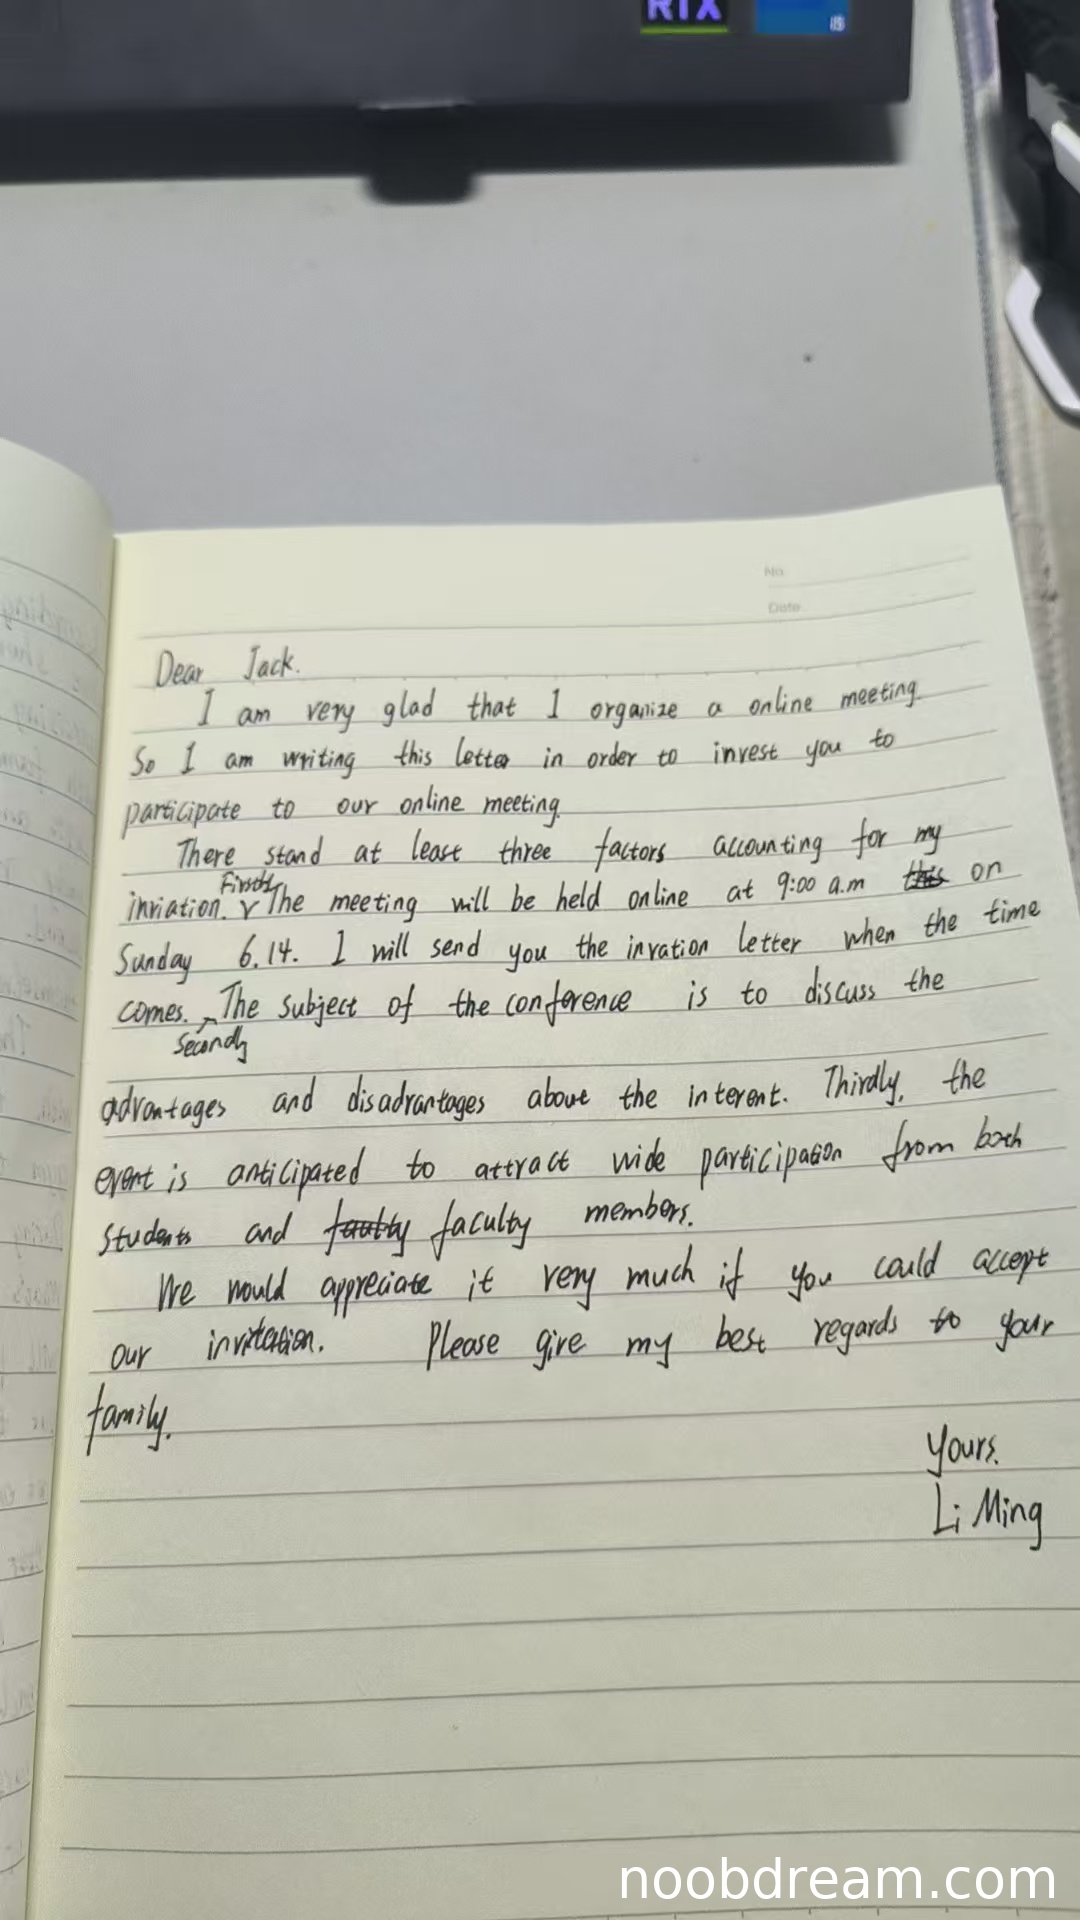 RTX
i5
No.
Date.
Dear Jack.
I am very glad that I organize a online meeting.
So I am writing this letter in order to invest you to
participate to our online meeting.
There stand at least three factors accounting for my
inviation. Firstly The meeting will be held online at 9:00 a.m on
Sunday 6.14. I will send you the invation letter when the time
comes. Secondly The subject of the conference is to discuss the
advantages and disadvantages about the interent. Thirdly, the
event is anticipated to attract wide participation from both
students and faculty members.
We would appreciate it very much if you could accept
our invitation. Please give my best regards to your
family.
Yours.
Li Ming
noobdream.com